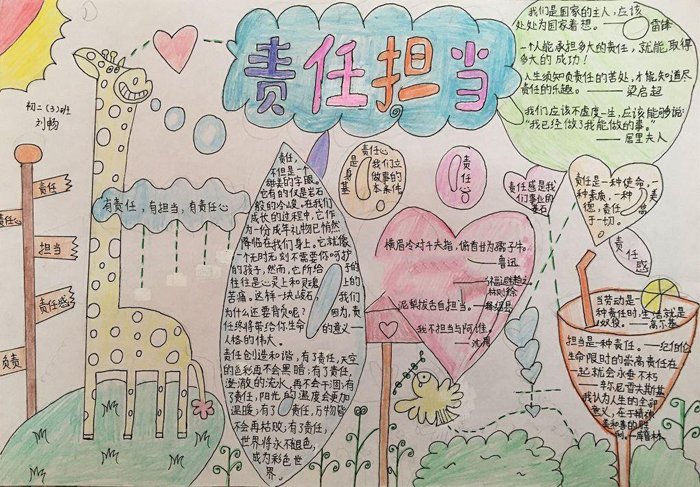 责任担当
初二(3)班
刘畅
责任
责任心
担当
责任感
负责
有责任，有担当，有责任心
责任，
不但是一个
甜美的字眼，
它有的仅是岩石
般的冷峻。在我们
成长的过程中，它作
为一份成年礼物已悄然
降临在我们身上。它就像
一个无时无刻不需要你呵护
的孩子，然而，它所给予的
往往是心灵上和肉体上的
苦痛。这样一块峻石，我们
为什么还要背负呢？因为，
责任终将带给你生命的意义——
人格的伟大。
责任创造和谐，有了责任，天空
的色彩再不会黑暗；有了责任，
澎湃的流水再不会干涸；有
了责任，阳光的温度会更加
温暖；有了责任，万物将
不会再枯败；有了责任，
世界将永不褪色，
成为彩色世
界。
责任心
是我们立
身做事的
基本条件
责任心
责任感是我
们事业的
基石
责任是一种使命，一
种素质，一种美
德，责任重
于一切。
责任
感
我们是国家的主人，应该
处处为国家着想。——雷锋
一个人能承担多大的责任，就能取得
多大的成功！
人生须知负责任的苦处，才能知道尽
责任的乐趣。——梁启超
我们应该不虚度一生，应该能够说：
“我已经做了我能做的事。”
——居里夫人
横眉冷对千夫指，俯首甘为孺子牛。
——鲁迅
林则徐
我不担当与何住。
——沈周
当劳动是一
种责任时，生活就是
奴役。——高尔基
担当是一种责任。
生命限时的崇高责任在一
起就会永垂不朽
我认为人生的全部
意义，在于